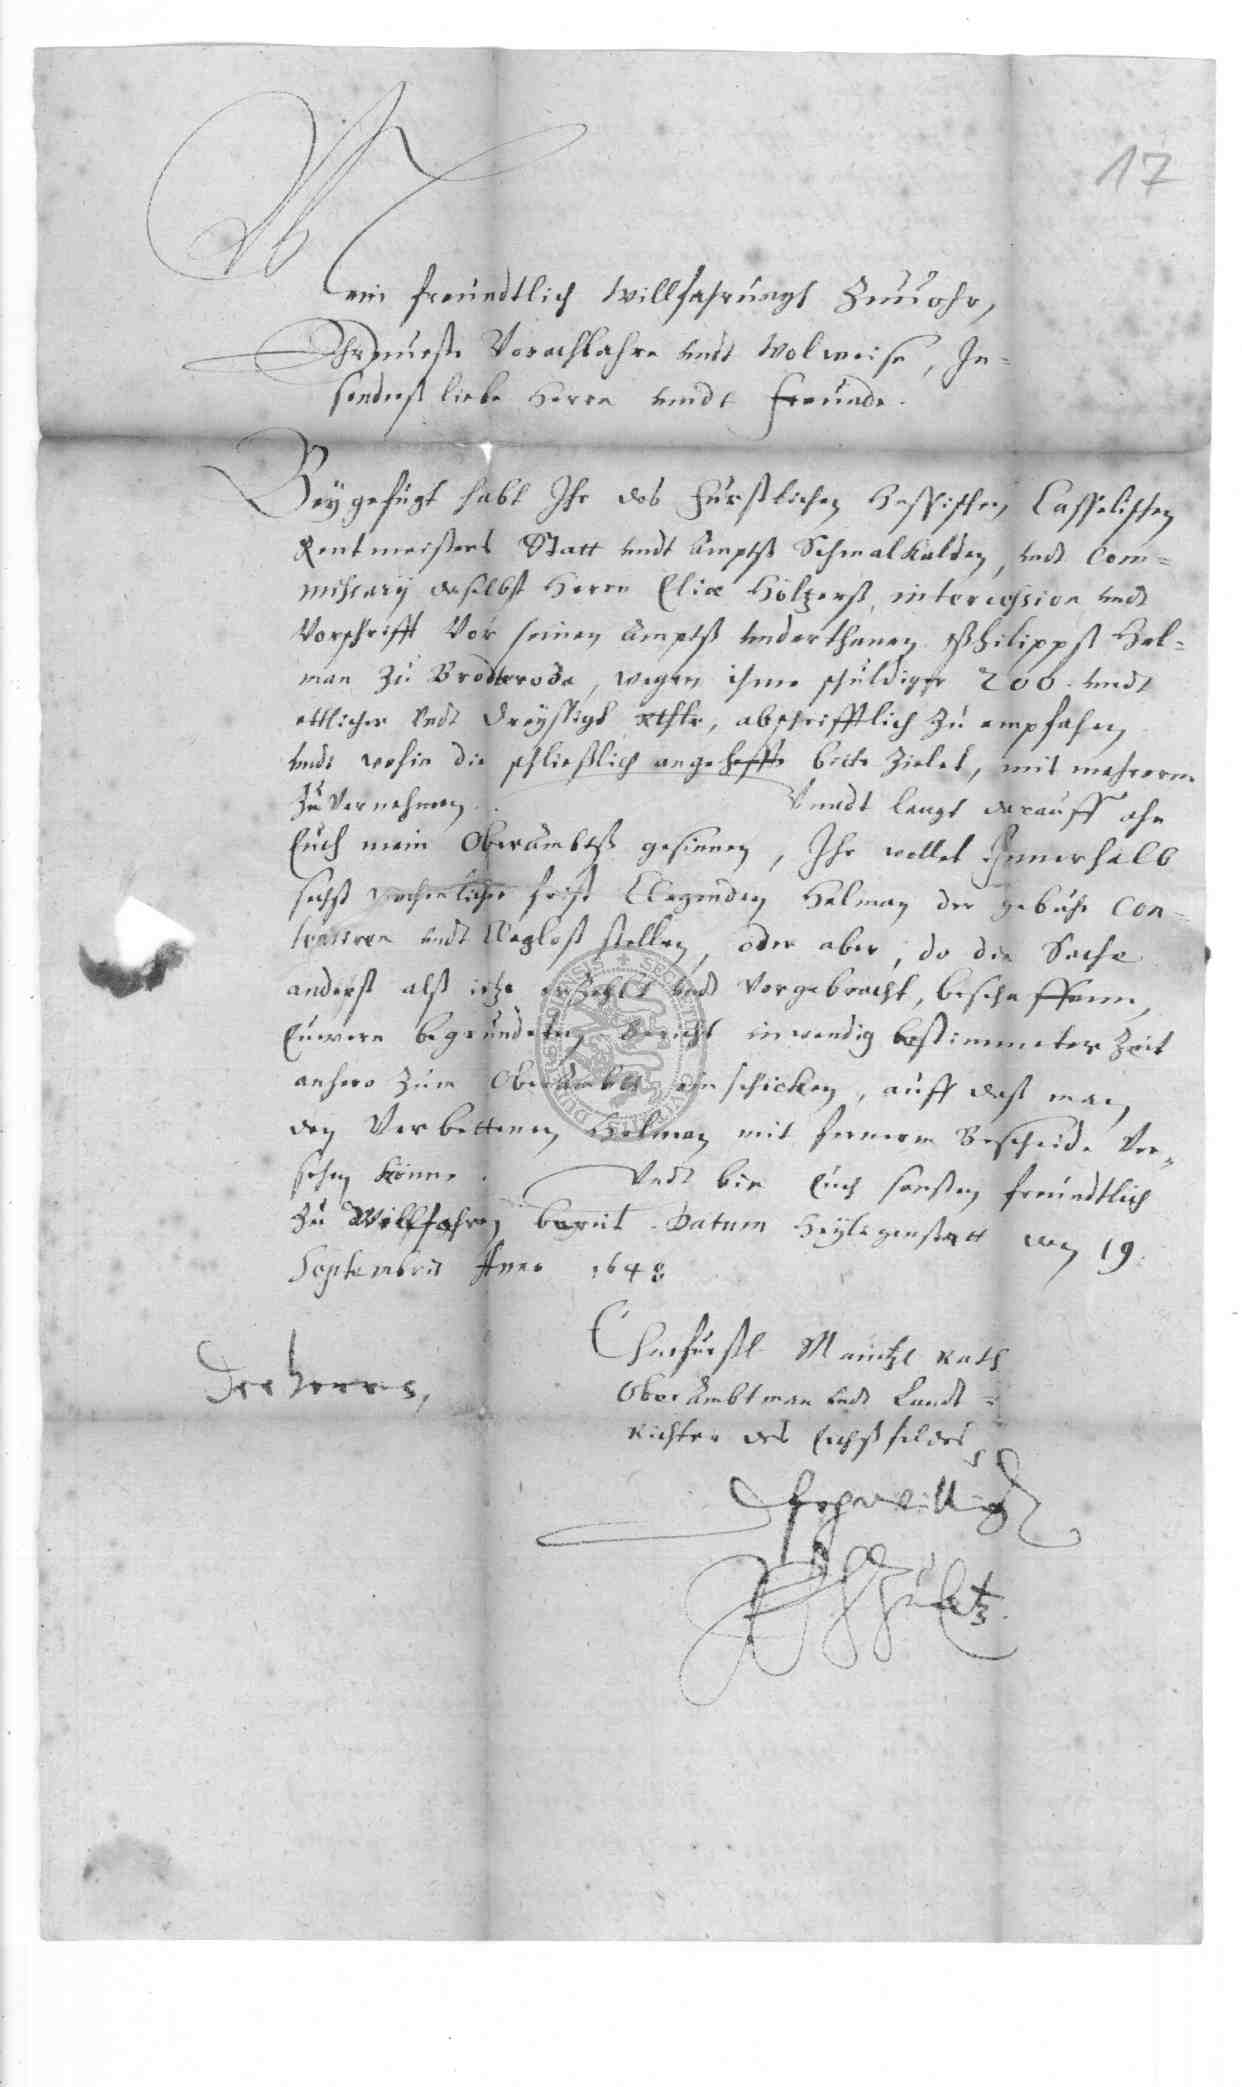 17
Mein freundtlich Willfahrungh Zuuohr,
Ehrnueste Vorachtbahre undt Wolweise, In=
sonderß liebe Herrn undt Freunde.
Beygefügt habt Ihr des Fürstlichen Hessischen Casselischen
Rentmeisters Statt undt Ampts Schmalkalden, undt Com=
missarÿ daselbst Herrn Eliæ Höltzerß, intercession undt
Vorschrifft Vor seinen Amptß Underthanen Philippß Hel=
man zu Broderode, wegen ihme schuldiger 200. undt
ettlicher Undt Dreyssigh rthlr, abschrifftlich zu empfahen
undt wohin die schließlich angeheffte bitte Zielet, mit mehrerm
Zu Vernehmen. Unndt langt darauff ahn
Euch mein Oberambtß gesinnen, Ihr wollet Innerhalb
sechß wochentlicher frist Clagenden Helman der gebühr Con=
tentiren undt Klaglos stellen, oder aber, do die Sache
anderß alß itzo erzehlt undt Vorgebracht, beschaffenn,
Euwern begründeten Bericht inwendig bestimmeter Zeit
anhero zum Oberambte einschicken, auff daß man
den Verbettenen Helman mit fernerm Bescheide Ver=
sehen könne. Undt bin Euch sonsten freundtlich
zu Willfahren bereit. Datum Heyligenstatt den 19.
Septembris Anno 1648
Churfürstl. Maintzl. Rath
Oberambtman undt Landt=
Richter des Eichßfeldes
Der Herrn,